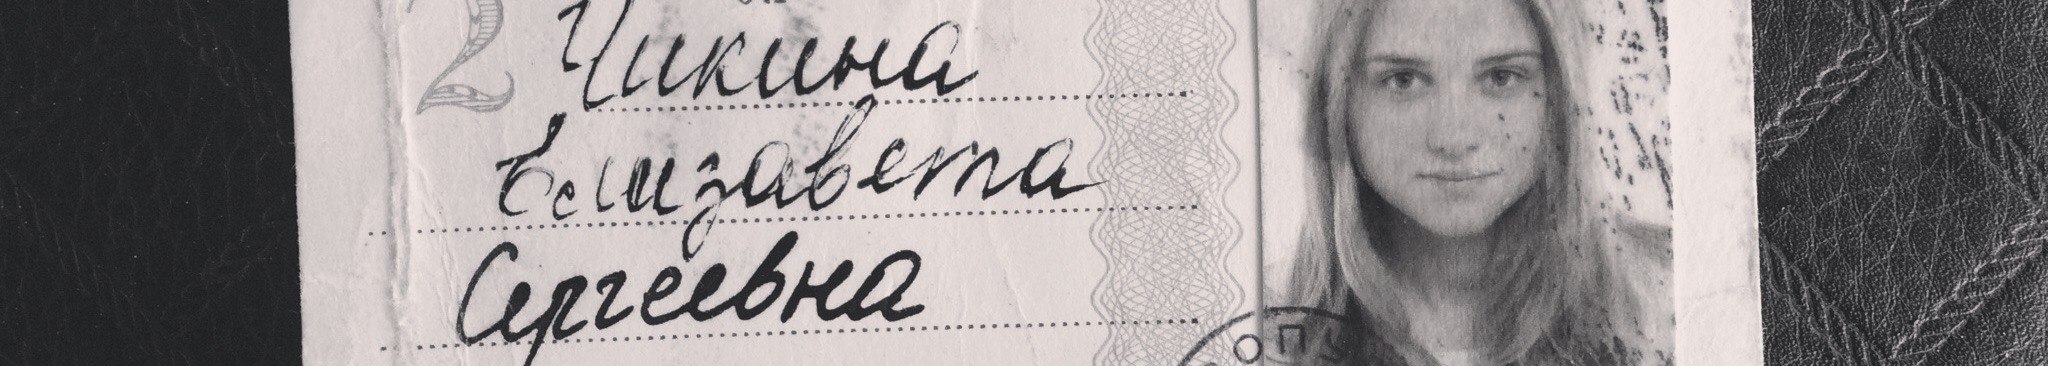 2
Чикина
Елизавета
Сергеевна
ОПУ